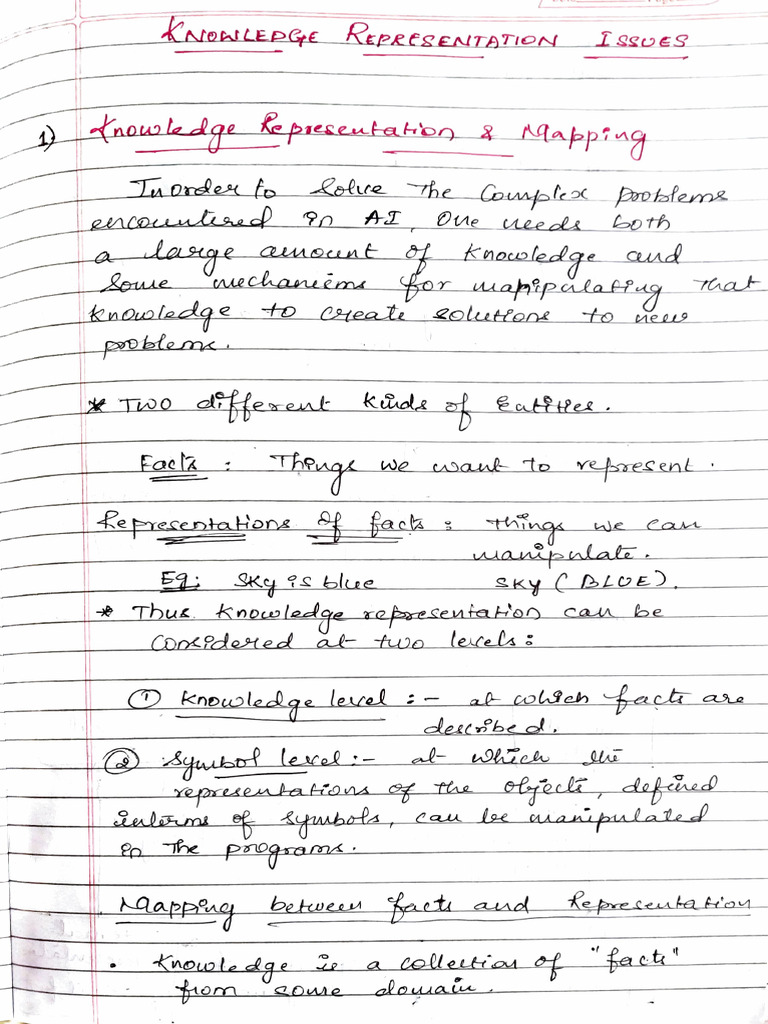 KNOWLEDGE REPRESENTATION ISSUES
1) Knowledge Representation & Mapping
Inorder to solve the complex problems
encountered in AI, one needs both
a large amount of knowledge and
some mechanisms for manipulating that
knowledge to create solutions to new
problems.
* TWO different kinds of Entities.
Facts : Things we want to represent.
Representations of facts : things we can
manipulate.
Eg: Sky is blue SKY (BLUE).
* Thus knowledge representation can be
considered at two levels :
① Knowledge level :- at which facts are
described.
② Symbol level :- at which the
representations of the objects, defined
interms of symbols, can be manipulated
in the programs.
Mapping between facts and Representation
• Knowledge is a collection of "facts"
from some domain.